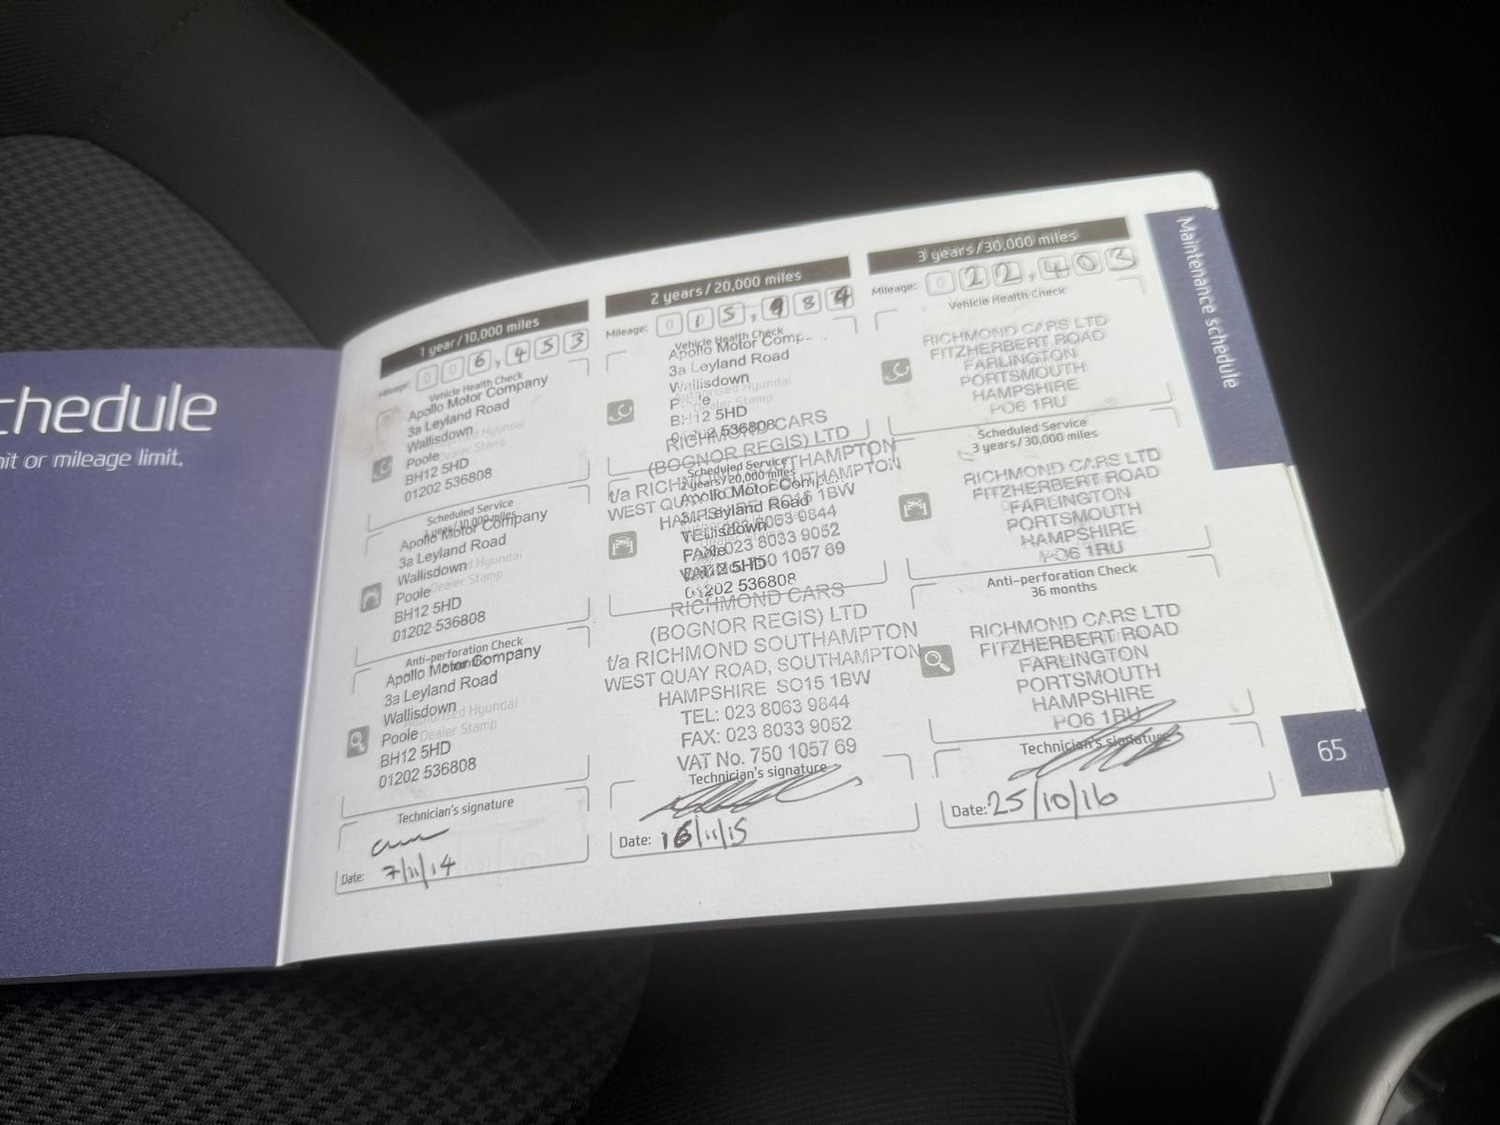 chedule
nit or mileage limit.
1 year/10,000 miles
Mileage: 0 0 6,453
Vehicle Health Check
Apollo Motor Company
3a Leyland Road
Wallisdown
Poole
BH12 5HD
01202 536808
Scheduled Service
1 year/10,000 miles
Apollo Motor Company
3a Leyland Road
Wallisdown
Poole Dealer Stamp
BH12 5HD
01202 536808
Anti-perforation Check
Apollo Motor Company
3a Leyland Road
Wallisdown
Authorised Hyundai
Poole Dealer Stamp
BH12 5HD
01202 536808
Technician's signature
Date: 7/11/14
2 years/20,000 miles
Mileage: 0 15,984
Vehicle Health Check
Apollo Motor Comp
3a Leyland Road
Wallisdown
BH12 5HD
01202 536808
RICHMOND CARS
(BOGNOR REGIS) LTD
Scheduled Service
2 years/20,000 miles
t/a RICHMOND SOUTHAMPTON
WEST QUAY ROAD, SOUTHAMPTON
Apollo Motor Comp
HAMPSHIRE SO15 1BW
3a Leyland Road
TEL: 023 8063 9844
Wallisdown
FAX: 023 8033 9052
Poole
VAT No. 750 1057 69
BH12 5HD
01202 536808
RICHMOND CARS
(BOGNOR REGIS) LTD
t/a RICHMOND SOUTHAMPTON
WEST QUAY ROAD, SOUTHAMPTON
HAMPSHIRE SO15 1BW
TEL: 023 8063 9844
FAX: 023 8033 9052
VAT No. 750 1057 69
Technician's signature
Date: 16/11/15
3 years/30,000 miles
Mileage: 0 22,403
Vehicle Health Check
RICHMOND CARS LTD
FITZHERBERT ROAD
FARLINGTON
PORTSMOUTH
HAMPSHIRE
PO6 1RU
Scheduled Service
3 years/30,000 miles
RICHMOND CARS LTD
FITZHERBERT ROAD
FARLINGTON
PORTSMOUTH
HAMPSHIRE
PO6 1RU
Anti-perforation Check
36 months
RICHMOND CARS LTD
FITZHERBERT ROAD
FARLINGTON
PORTSMOUTH
HAMPSHIRE
PO6 1RU
Technician's signature
Date: 25/10/16
Maintenance schedule
65